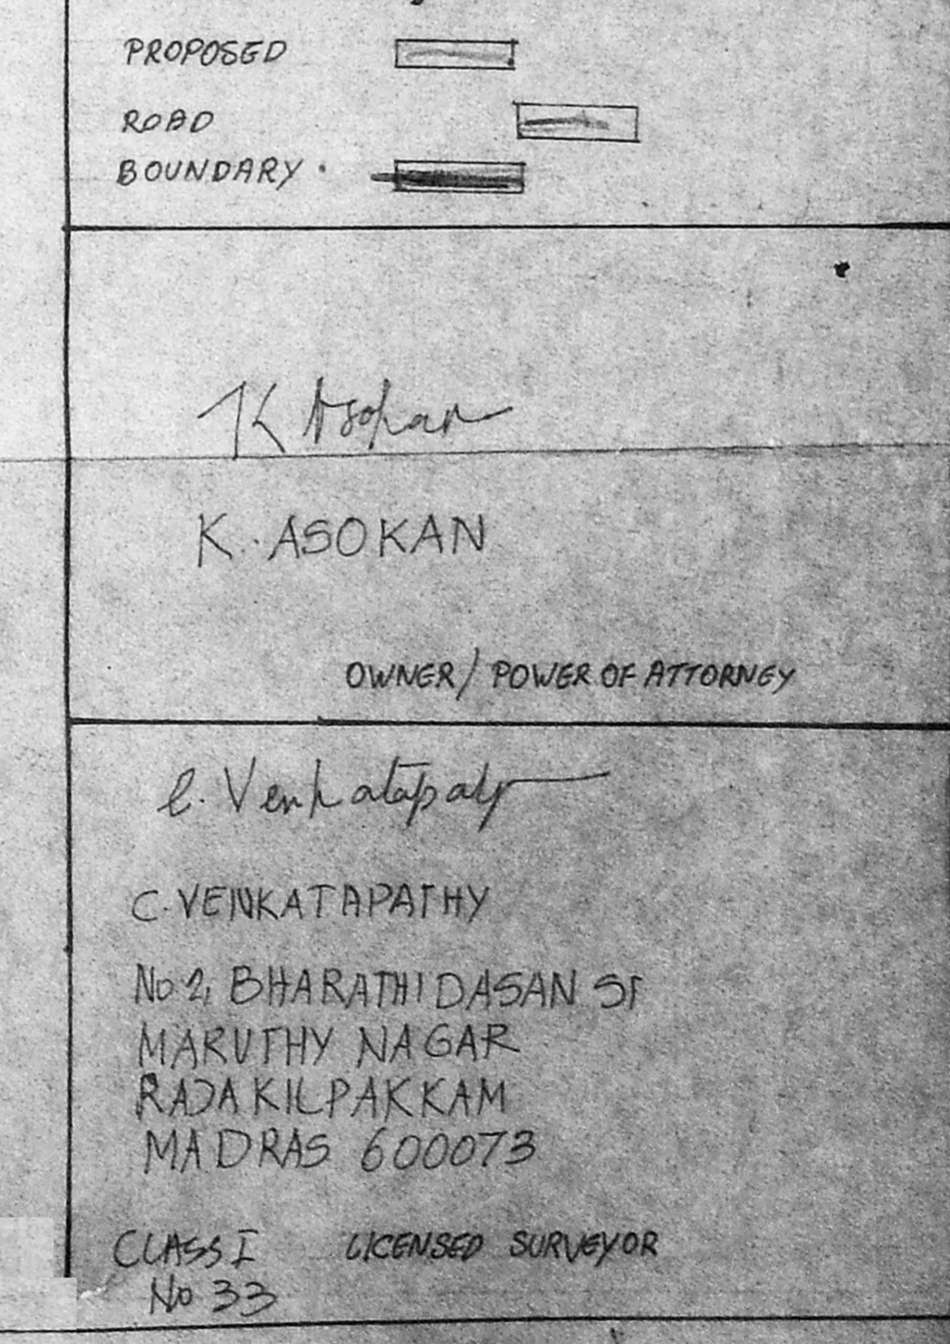 PROPOSED
ROAD
BOUNDARY
K Asokan
K. ASOKAN
OWNER / POWER OF ATTORNEY
C. Venkatapathy
C. VENKATAPATHY
No 2, BHARATHIDASAN ST
MARUTHY NAGAR
RAJAKILPAKKAM
MADRAS 600073
CLASS I LICENSED SURVEYOR
No 33